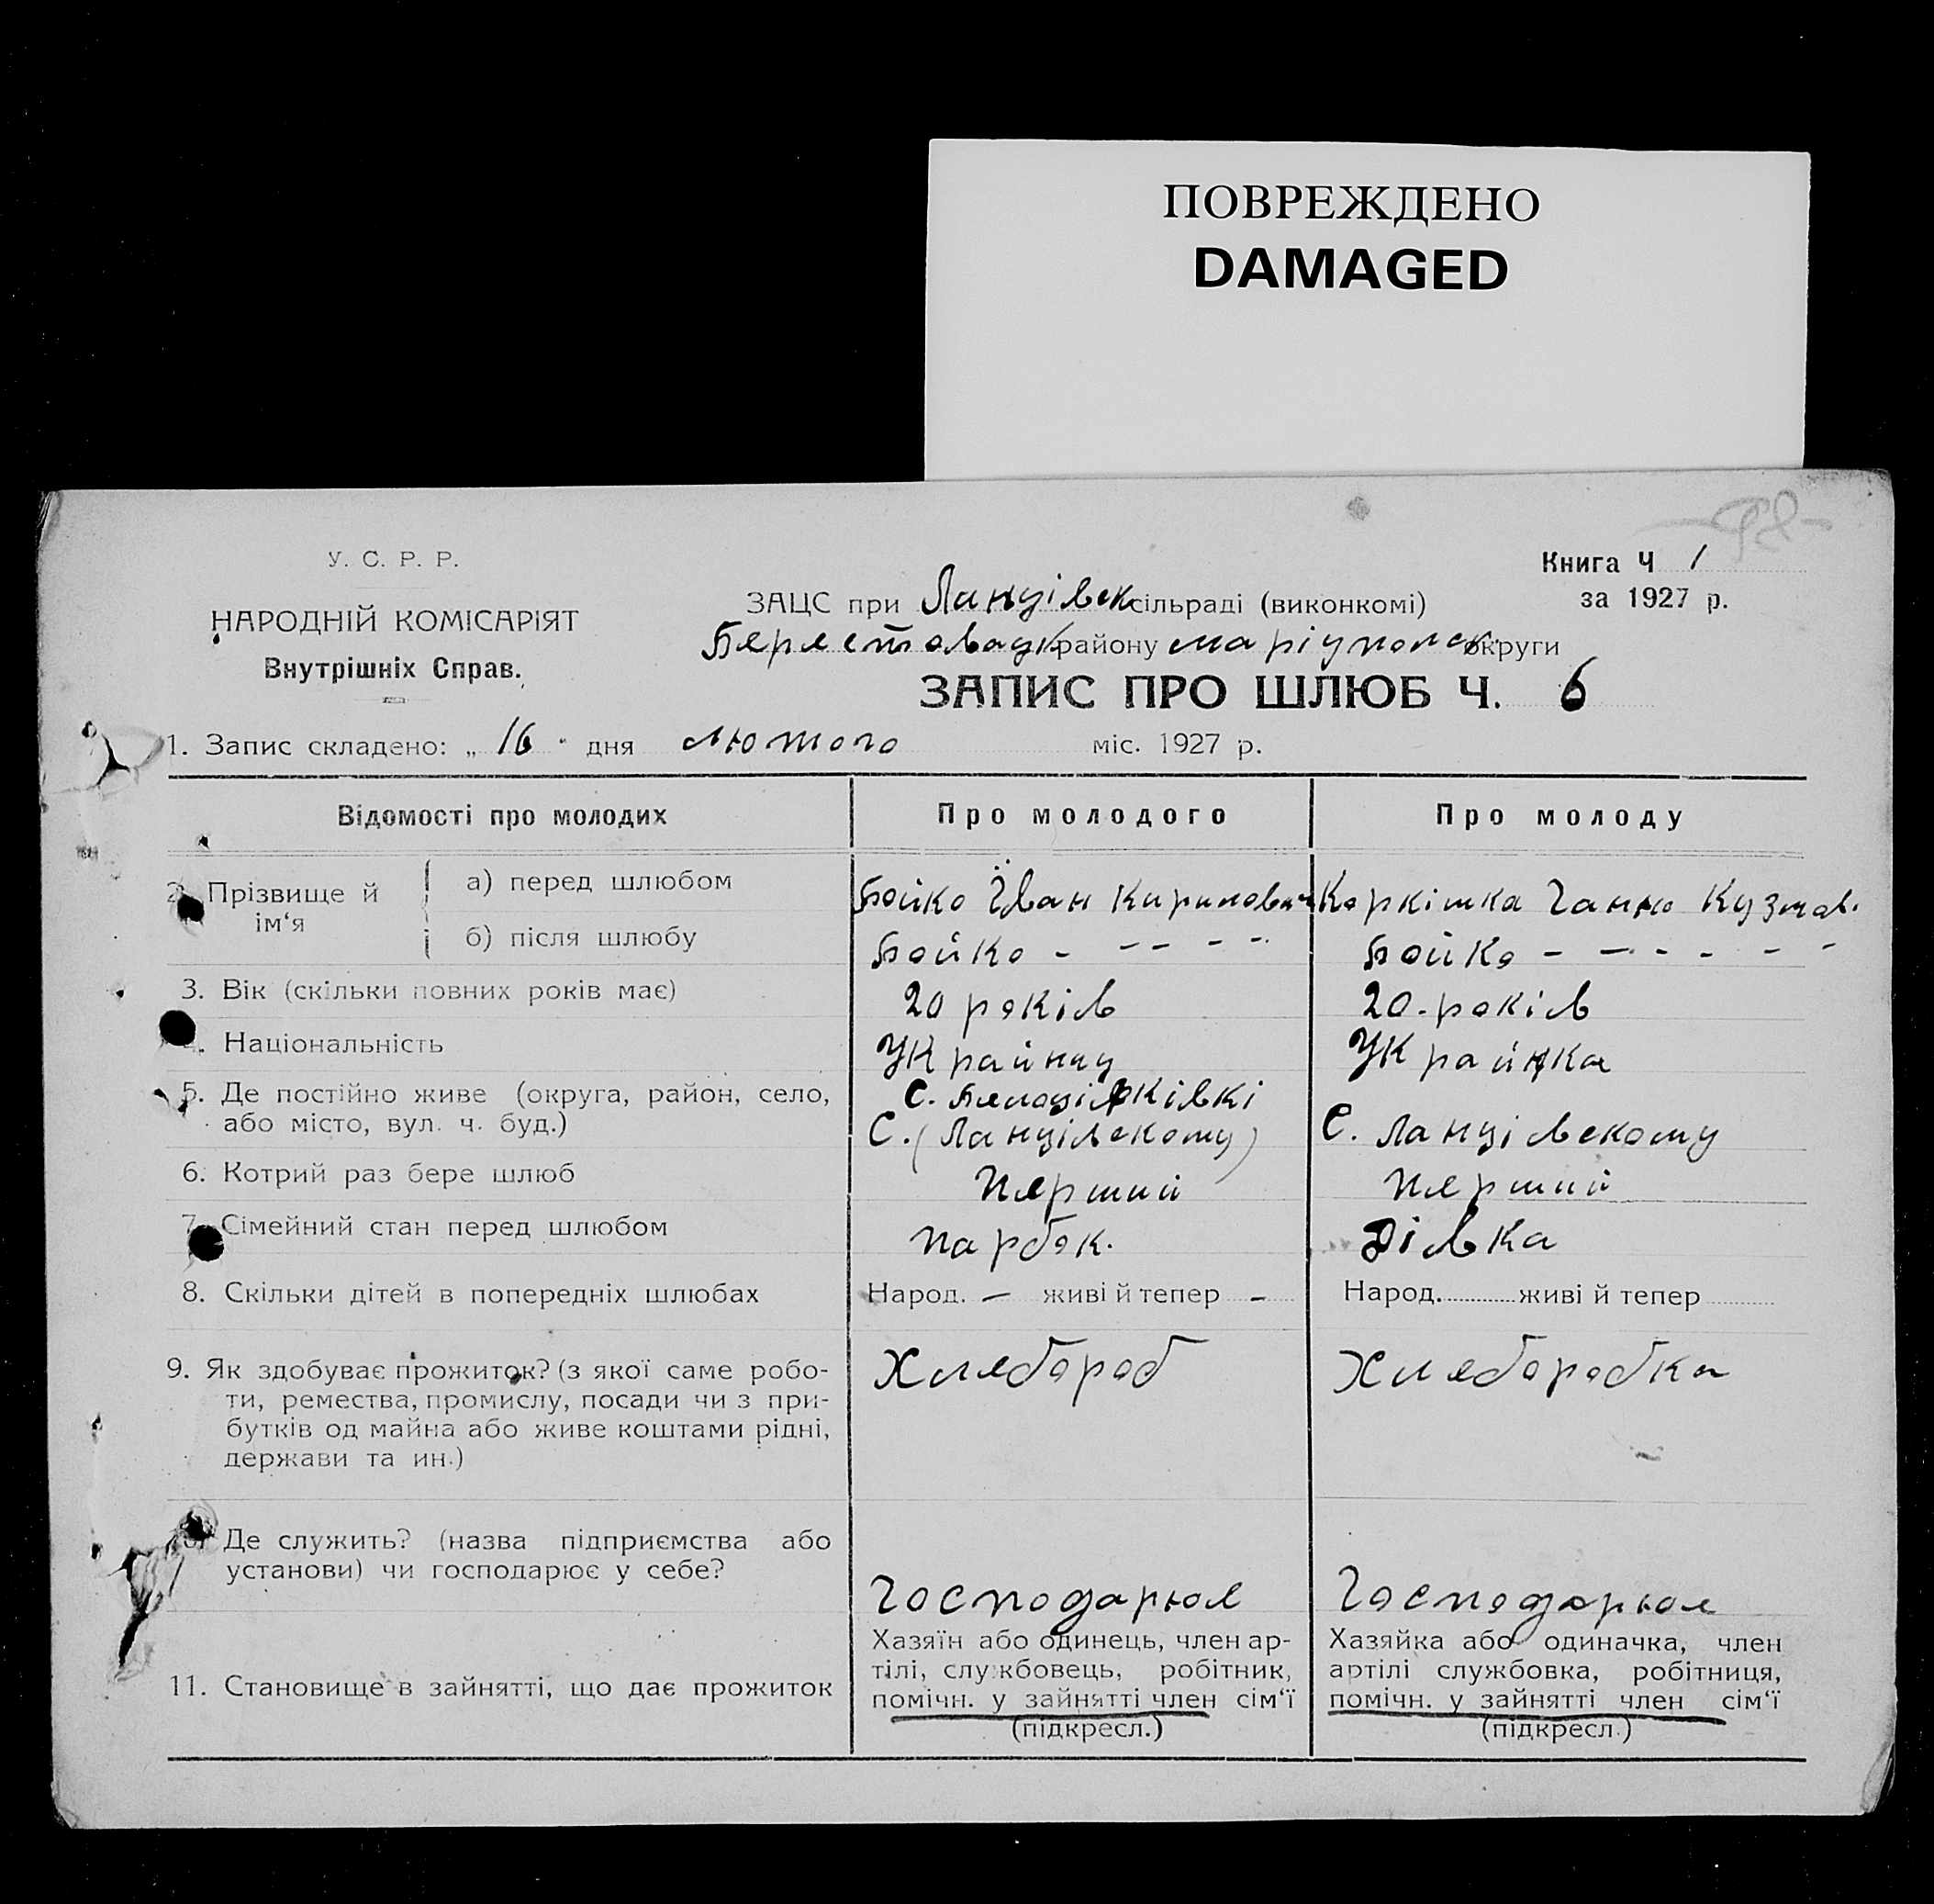 ПОВРЕЖДЕНО
DAMAGED
У. С. Р. Р.
НАРОДНІЙ КОМІСАРІЯТ
Внутрішніх Справ.
Книга Ч 1
за 1927 р.
ЗАЦС при Ланцівск сільраді (виконкомі)
Берестовацк району маріупольск округи
ЗАПИС ПРО ШЛЮБ Ч. 6
1. Запис складено: „ 16 " дня лютого міс. 1927 р.
Відомості про молодих
Про молодого
Про молоду
2. Прізвище й ім‘я
а) перед шлюбом
Бойко Їван Кирилович
Коркішка Ганна Кузмов.
б) після шлюбу
Бойко - -- - -
Бойко - - - - - -
3. Вік (скільки повних років має)
20 років
20. років
4. Національність
Украйнец
Украйнка
5. Де постійно живе (округа, район, село,
або місто, вул. ч. буд.)
С. (Ланцівскому)
С. Ланцівскому
6. Котрий раз бере шлюб
Перший
Перший
7. Сімейний стан перед шлюбом
парбок.
Дівка
8. Скільки дітей в попередніх шлюбах
Народ. — живі й тепер -
Народ. живі й тепер
9. Як здобуває прожиток? (з якої саме робо-
ти, ремества, промислу, посади чи з при-
бутків од майна або живе коштами рідні,
держави та ин.)
Хлебороб
Хлеборобка
10. Де служить? (назва підприємства або
установи) чи господарює у себе?
Господарюе
Господарюе
11. Становище в зайнятті, що дає прожиток
Хазяїн або одинець, член ар-
тілі, службовець, робітник,
помічн. у зайнятті член сім‘ї
(підкресл.)
Хазяйка або одиначка, член
артілі службовка, робітниця,
помічн. у зайнятті член сім‘ї
(підкресл.)